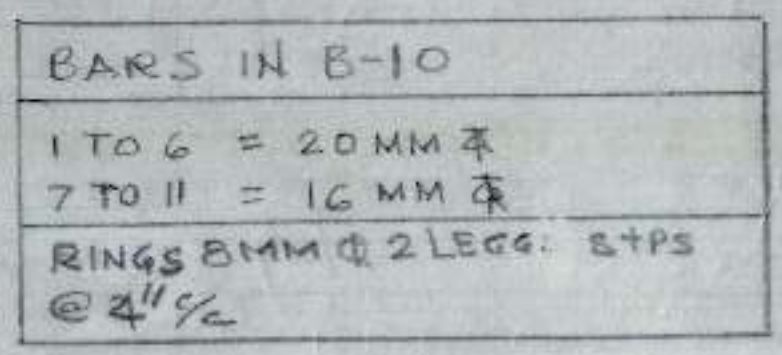 BARS IN B-10
1 TO 6 = 20 MM Ф
7 TO 11 = 16 MM Ф
RINGS 8MM Ф 2 LEGG. STPS
@ 4" c/c